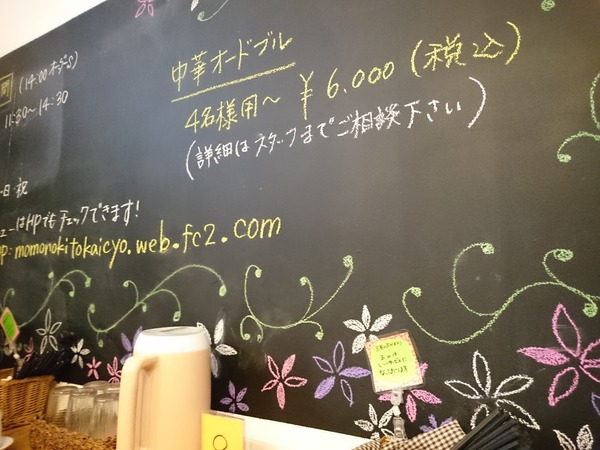 (14:00 オーダー)
11:30〜14:30
中華オードブル
4名様用〜 ¥6.000 (税込)
(詳細はスタッフまでご相談下さい)
日・祝
ューはHPでもチェックできます!
P: momonokitokaicyo.web.fc2.com